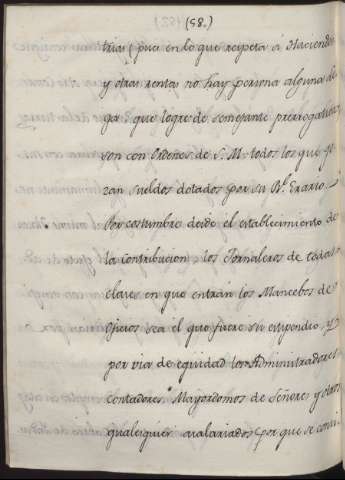 (58.)
trias (pues en lo que respeta á Haciendas
y otras rentas no hay persona alguna le-
ga que logre de semejante prerrogativa)
son con Ordenes de S. M. todos los que go-
zan sueldos dotados por su Rl. Erario. Y
Por costumbre desde el establecimiento de
la Contribucion, los Jornaleros de todas
clases en que entran los Mancebos de
Oficios sea el que fuere su estipendio. Y
por via de equidad los Administradores
contadores, Mayordomos de Señores y otros
qualesquier asalariados porque se consi-